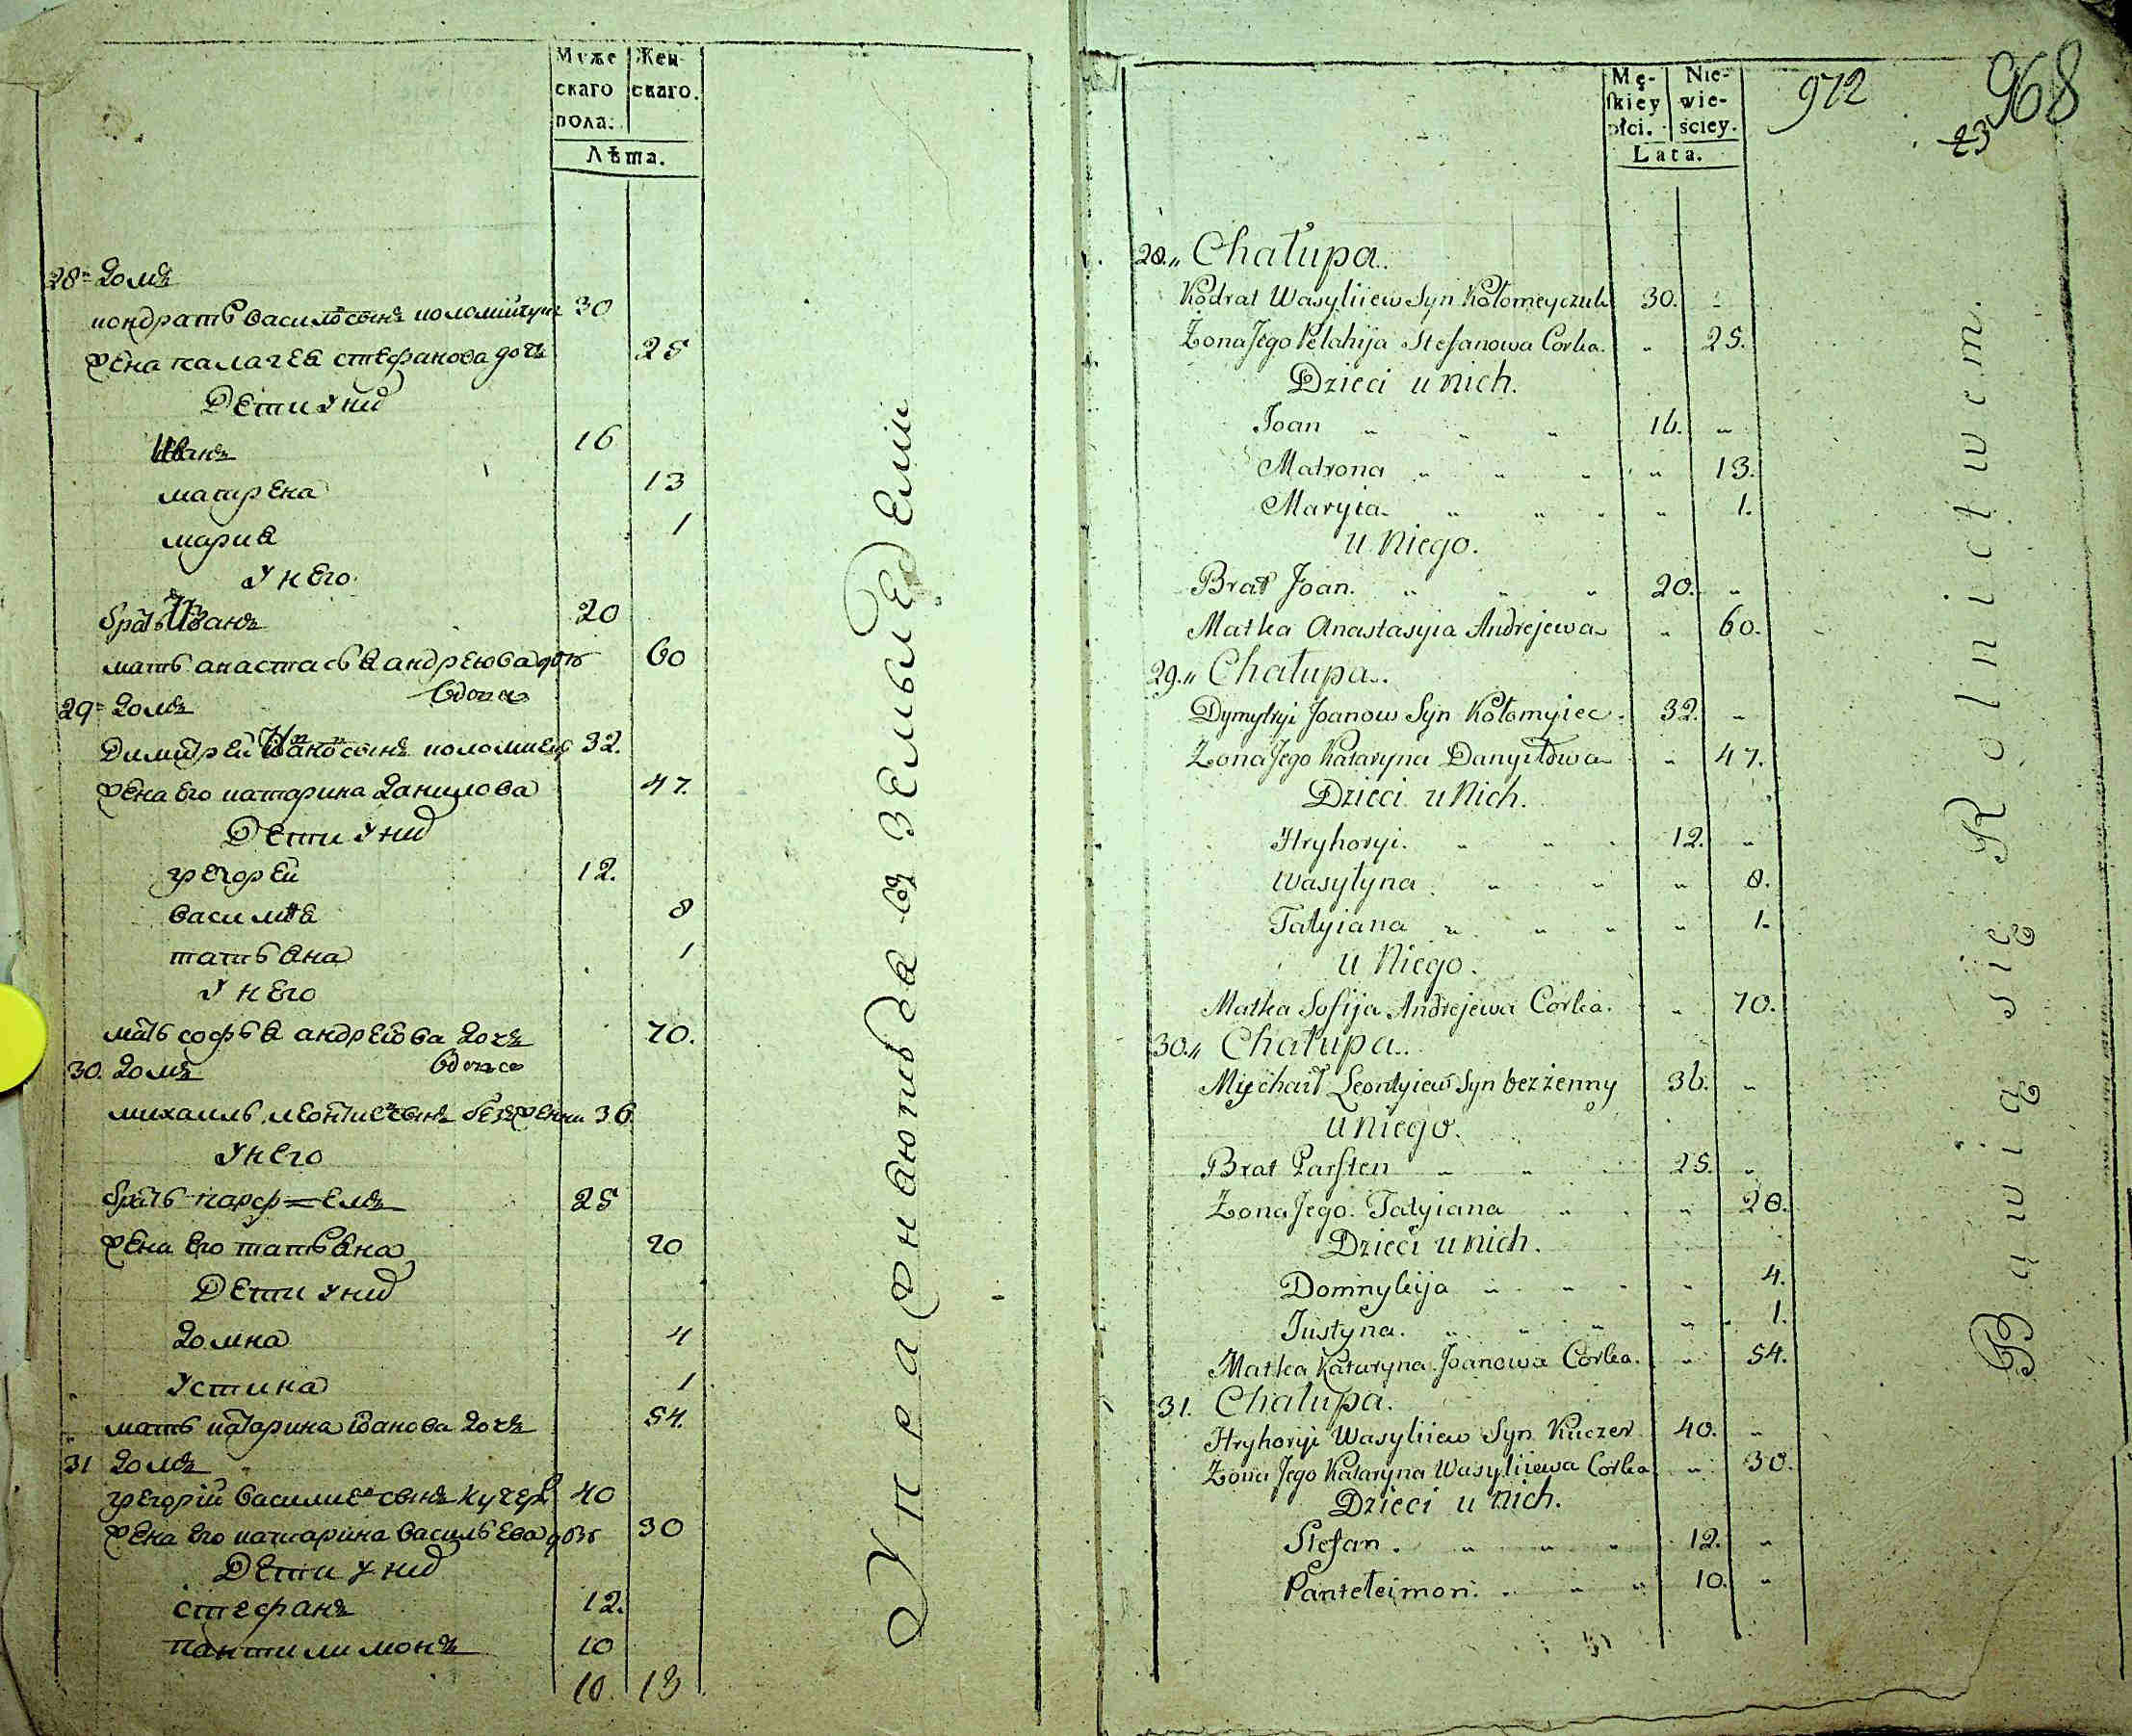 Муже скаго пола.
Жен скаго.
Лѣта.
28 - домъ
кондратъ васильевъ сынъ коломийчукъ 30
жена палагея стефанова дочь 25
дети у них
Иванъ 16
матрена 13
мария 1
у него
братъ Иванъ 20
мать анастасья андреюва дочь 60
вдова
29 - домъ
димитрей Ивановъ сынъ коломиецъ 32.
жена его катарина данилова 47.
дети у них
грегорей 12.
8
татьяна 1
у него
мать софья андреева дочь 70.
30. домъ вдова
михаилъ леонтиевъ сынъ безженни 36
у него
братъ парф=емъ 25
жена его татьяна 20
дети у них
домна 4
устина 1
мать катарина иванова дочь 54.
31 домъ
грегорий василиевъ сынъ кучеръ 40
жена его катарина васильева дочь 30
дети у них
стефанъ 12.
пантилимонъ 10
10. 13
Упражняются въ земледелии
972
968
23
Mę- skiey płci.
Nie- wie- ściey.
Lata.
28.,, Chałupa.
Kodrat Wasyliiew Syn Kołomeyczuk 30. "
Żona Jego Pelahija Stefanowa Corka. " 25.
Dzieci u nich.
Joan " " " 16. "
Matrona " " " " 13.
Maryia " " " " 1.
u Niego.
Brat Joan. " " " 20. "
Matka Anastasyia Andrejewa " 60.
29.,, Chałupa.
Dymytryi Joanow Syn Kołomyiec. 32. "
Żona Jego Kataryna Danyiłowa " 47.
Dzieci u Nich.
Hryhoryi. " " " 12. "
Wasyłyna " " " 8.
Tatyiana " " " " 1.
u Niego.
Matka Sofija Andrejewa Corka. " 70.
30.,, Chałupa.
Mychaił Leontyiew Syn bezżenny 36. "
u niego.
Brat Parften " " 25. "
Żona Jego Tatyiana " " " 20.
Dzieci u nich.
Domnykija " " " " 4.
Justyna. " " " " 1.
Matka Kataryna Joanowa Corka. " 54.
31. Chałupa.
Hryhoryi Wasyliiew Syn Kuczer 40. "
Żona Jego Kataryna Wasyliiewa Corka " 30.
Dzieci u nich.
Stefan. " " " 12. "
Panteleimon. " " " 10. "
Bawią się Rolnictwem.